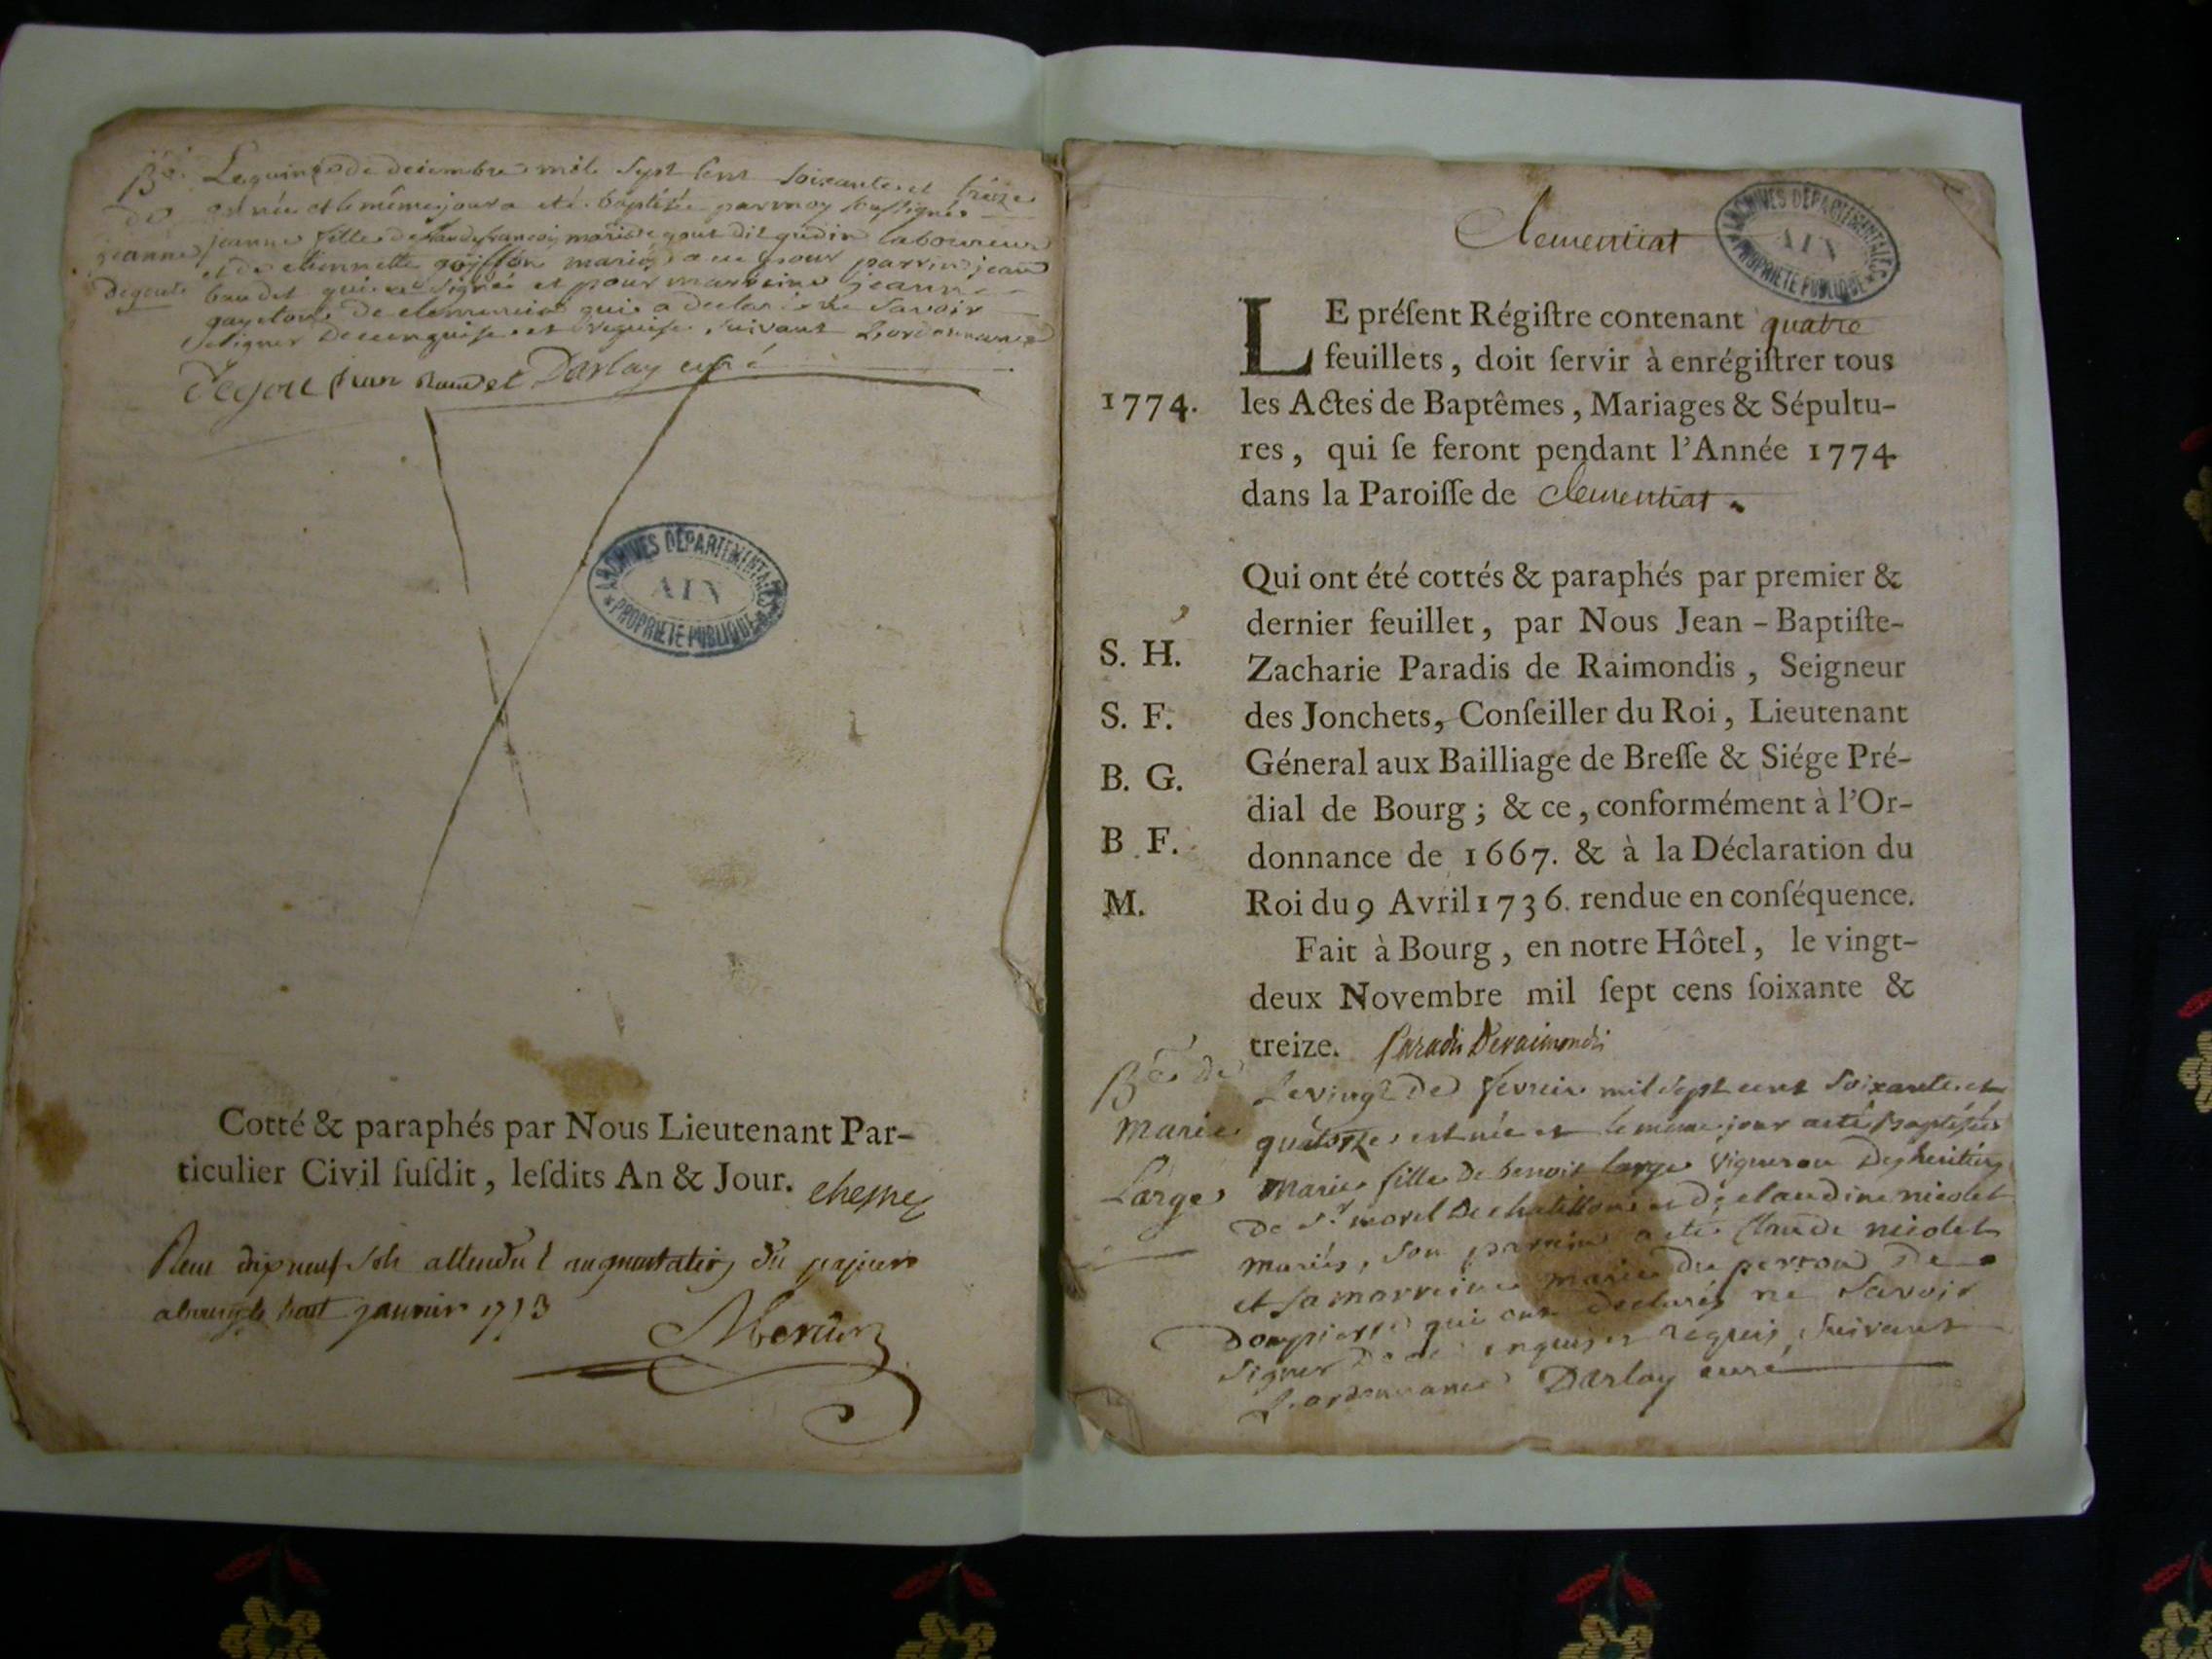 Be. Le quinze de decembre mil sept cent soixante et treize
de est née et le même jour a eté baptisée par moy soussigné
jeanne jeanne fille de Claude françois marie degout dit gudin laboureur
et de etiennette goiffon mariés a eu pour parrin jean
degoute baudet qui a signé et pour marreine jeanne
de clemencia qui a declaré ne savoir
signer de ce enquise et requise suivant L'ordonnance
Degout jean Baudet Darlay curé
ARCHIVES DÉPARTEMENTALES
AIN
PROPRIÉTÉ PUBLIQUE
Cotté & paraphés par Nous Lieutenant Par-
ticulier Civil ſuſdit, leſdits An & Jour.
dixneuf sols attendu l'augmentation du papier
le huit janvier 1773
Mercier
Clementiat
ARCHIVES DÉPARTEMENTALES
AIN
PROPRIÉTÉ PUBLIQUE
LE préſent Régiſtre contenant quatre
feuillets, doit ſervir à enrégiſtrer tous
1774. les Actes de Baptêmes, Mariages & Sépultu-
res, qui ſe feront pendant l'Année 1774
dans la Paroiſſe de Clementiat.
Qui ont été cottés & paraphés par premier &
dernier feuillet, par Nous Jean-Baptiſte-
S. H. Zacharie Paradis de Raimondis, Seigneur
S. F. des Jonchets, Conſeiller du Roi, Lieutenant
B. G. Géneral aux Bailliage de Breſſe & Siége Pré-
dial de Bourg; & ce, conformément à l'Or-
B. F. donnance de 1667. & à la Déclaration du
M. Roi du 9 Avril 1736. rendue en conſéquence.
Fait à Bourg, en notre Hôtel, le vingt-
deux Novembre mil ſept cens ſoixante &
treize. Paradis Deraimondis
Be. de Le vingt De fevrier mil sept cent soixante et
Marie quatorze est née et le même jour a eté baptisée
Large Marie fille de benoit large vigneron Des heritiers
De Sr. morel De chatillon et De claudine nicolet
mariés, son parrein a eté Claude nicolet
et sa marreine marie du perron De
Dompierre qui ont declarés ne savoir
signer De ce enquis et requis, suivant
L'ordonnance Darlay curé